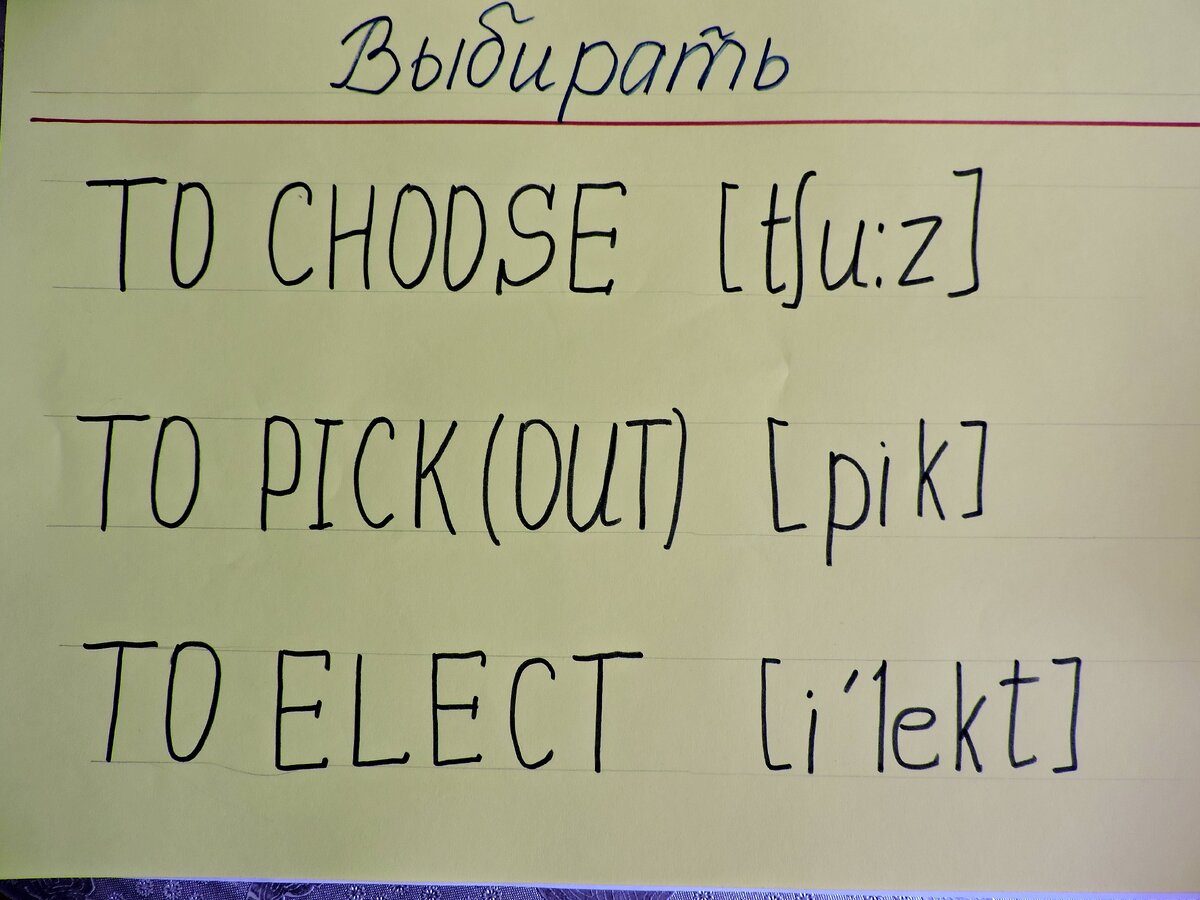 Выбирать
TO CHOOSE [tʃu:z]
TO PICK (OUT) [pik]
TO ELECT [i'lekt]